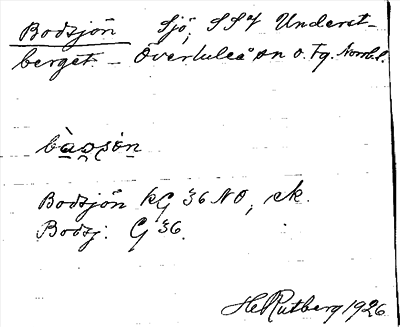 Bodsjön Sjö, SSV Underst-
berget. – Överluleå sn o. fg. Norrb. l.
bàǫṣön
Bodsjön kG 36 NO, ek.
Bodsj: G 36.
H Rutberg 1926